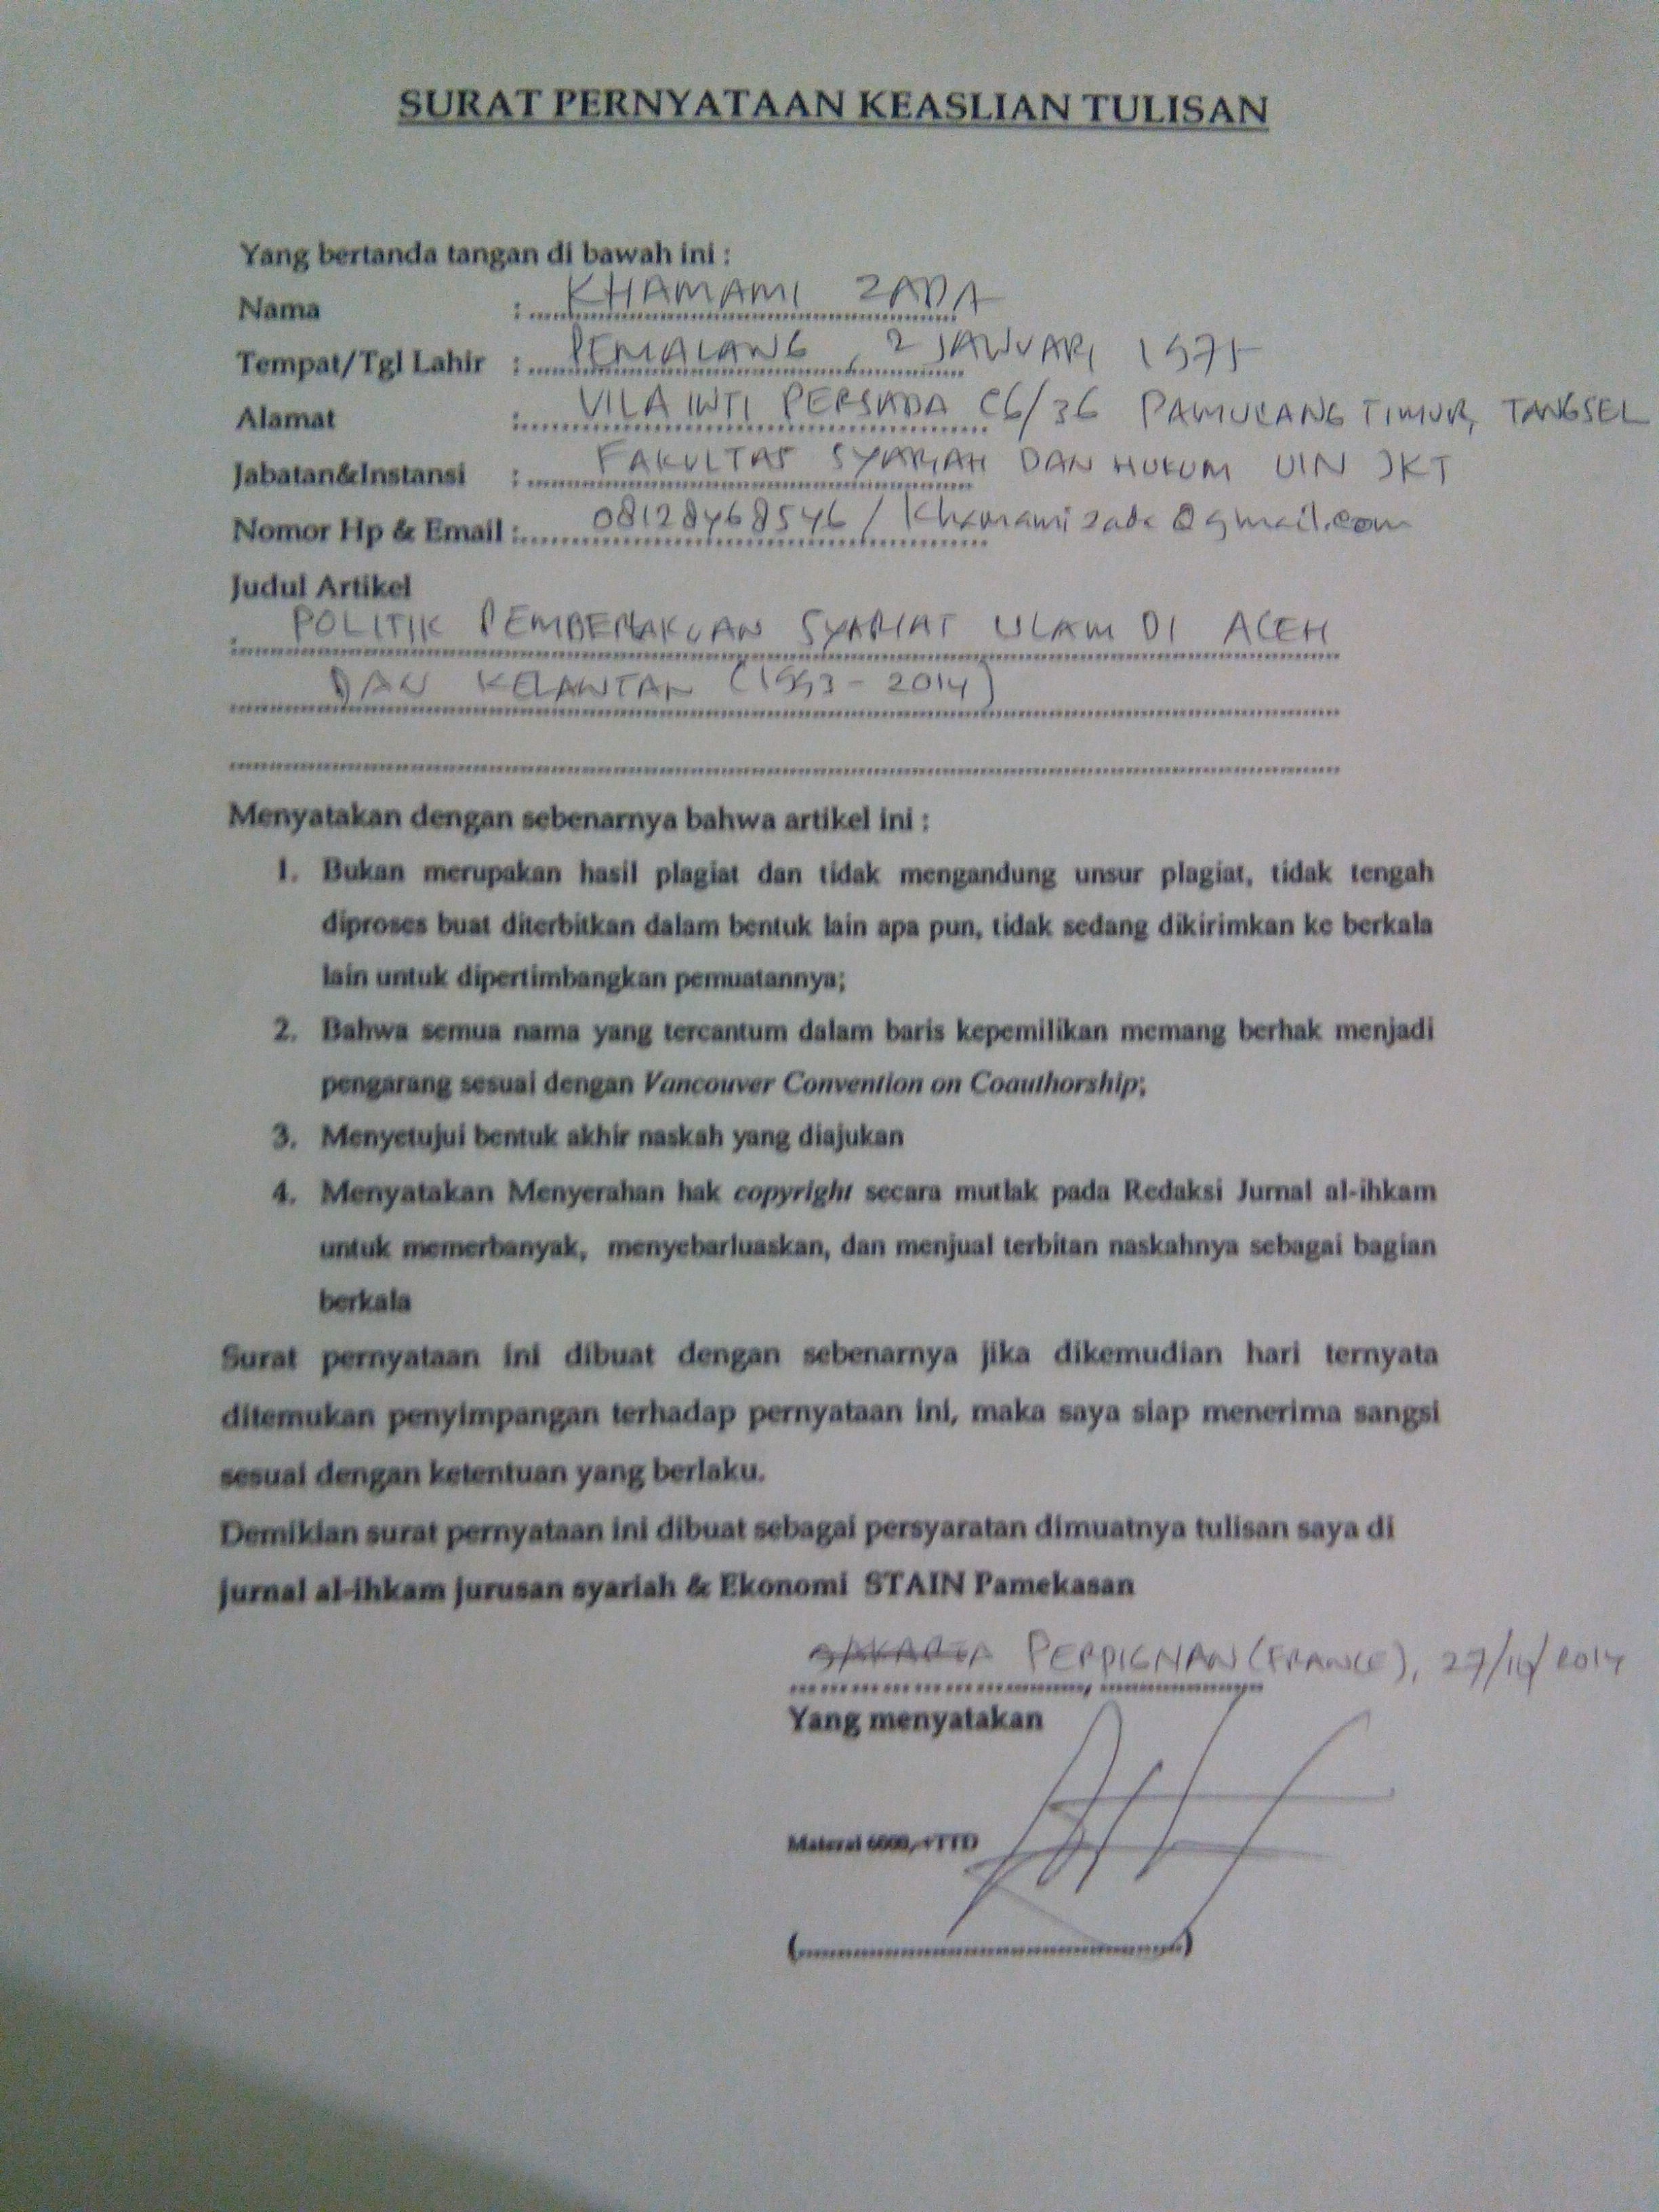 SURAT PERNYATAAN KEASLIAN TULISAN
Yang bertanda tangan di bawah ini :
Nama : KHAMAMI ZADA
Tempat/Tgl Lahir : PEMALANG, 2 JANUARI 1975
Alamat : VILA INTI PERSADA C6/36 PAMULANG TIMUR, TANGSEL
Jabatan&Instansi : FAKULTAS SYARIAH DAN HUKUM UIN JKT
Nomor Hp & Email : 08128468546 / khamamizada@gmail.com
Judul Artikel
: POLITIK PEMBERLAKUAN SYARIAT ISLAM DI ACEH
DAN KELANTAN (1993-2014)
Menyatakan dengan sebenarnya bahwa artikel ini :
1. Bukan merupakan hasil plagiat dan tidak mengandung unsur plagiat, tidak tengah
diproses buat diterbitkan dalam bentuk lain apa pun, tidak sedang dikirimkan ke berkala
lain untuk dipertimbangkan pemuatannya;
2. Bahwa semua nama yang tercantum dalam baris kepemilikan memang berhak menjadi
pengarang sesuai dengan Vancouver Convention on Coauthorship;
3. Menyetujui bentuk akhir naskah yang diajukan
4. Menyatakan Menyerahan hak copyright secara mutlak pada Redaksi Jurnal al-ihkam
untuk memerbanyak, menyebarluaskan, dan menjual terbitan naskahnya sebagai bagian
berkala
Surat pernyataan ini dibuat dengan sebenarnya jika dikemudian hari ternyata
ditemukan penyimpangan terhadap pernyataan ini, maka saya siap menerima sangsi
sesuai dengan ketentuan yang berlaku.
Demikian surat pernyataan ini dibuat sebagai persyaratan dimuatnya tulisan saya di
jurnal al-ihkam jurusan syariah & Ekonomi STAIN Pamekasan
JAKARTA PERPIGNAN (FRANCE), 
Yang menyatakan
Materai 6000,+TTD
(..........)